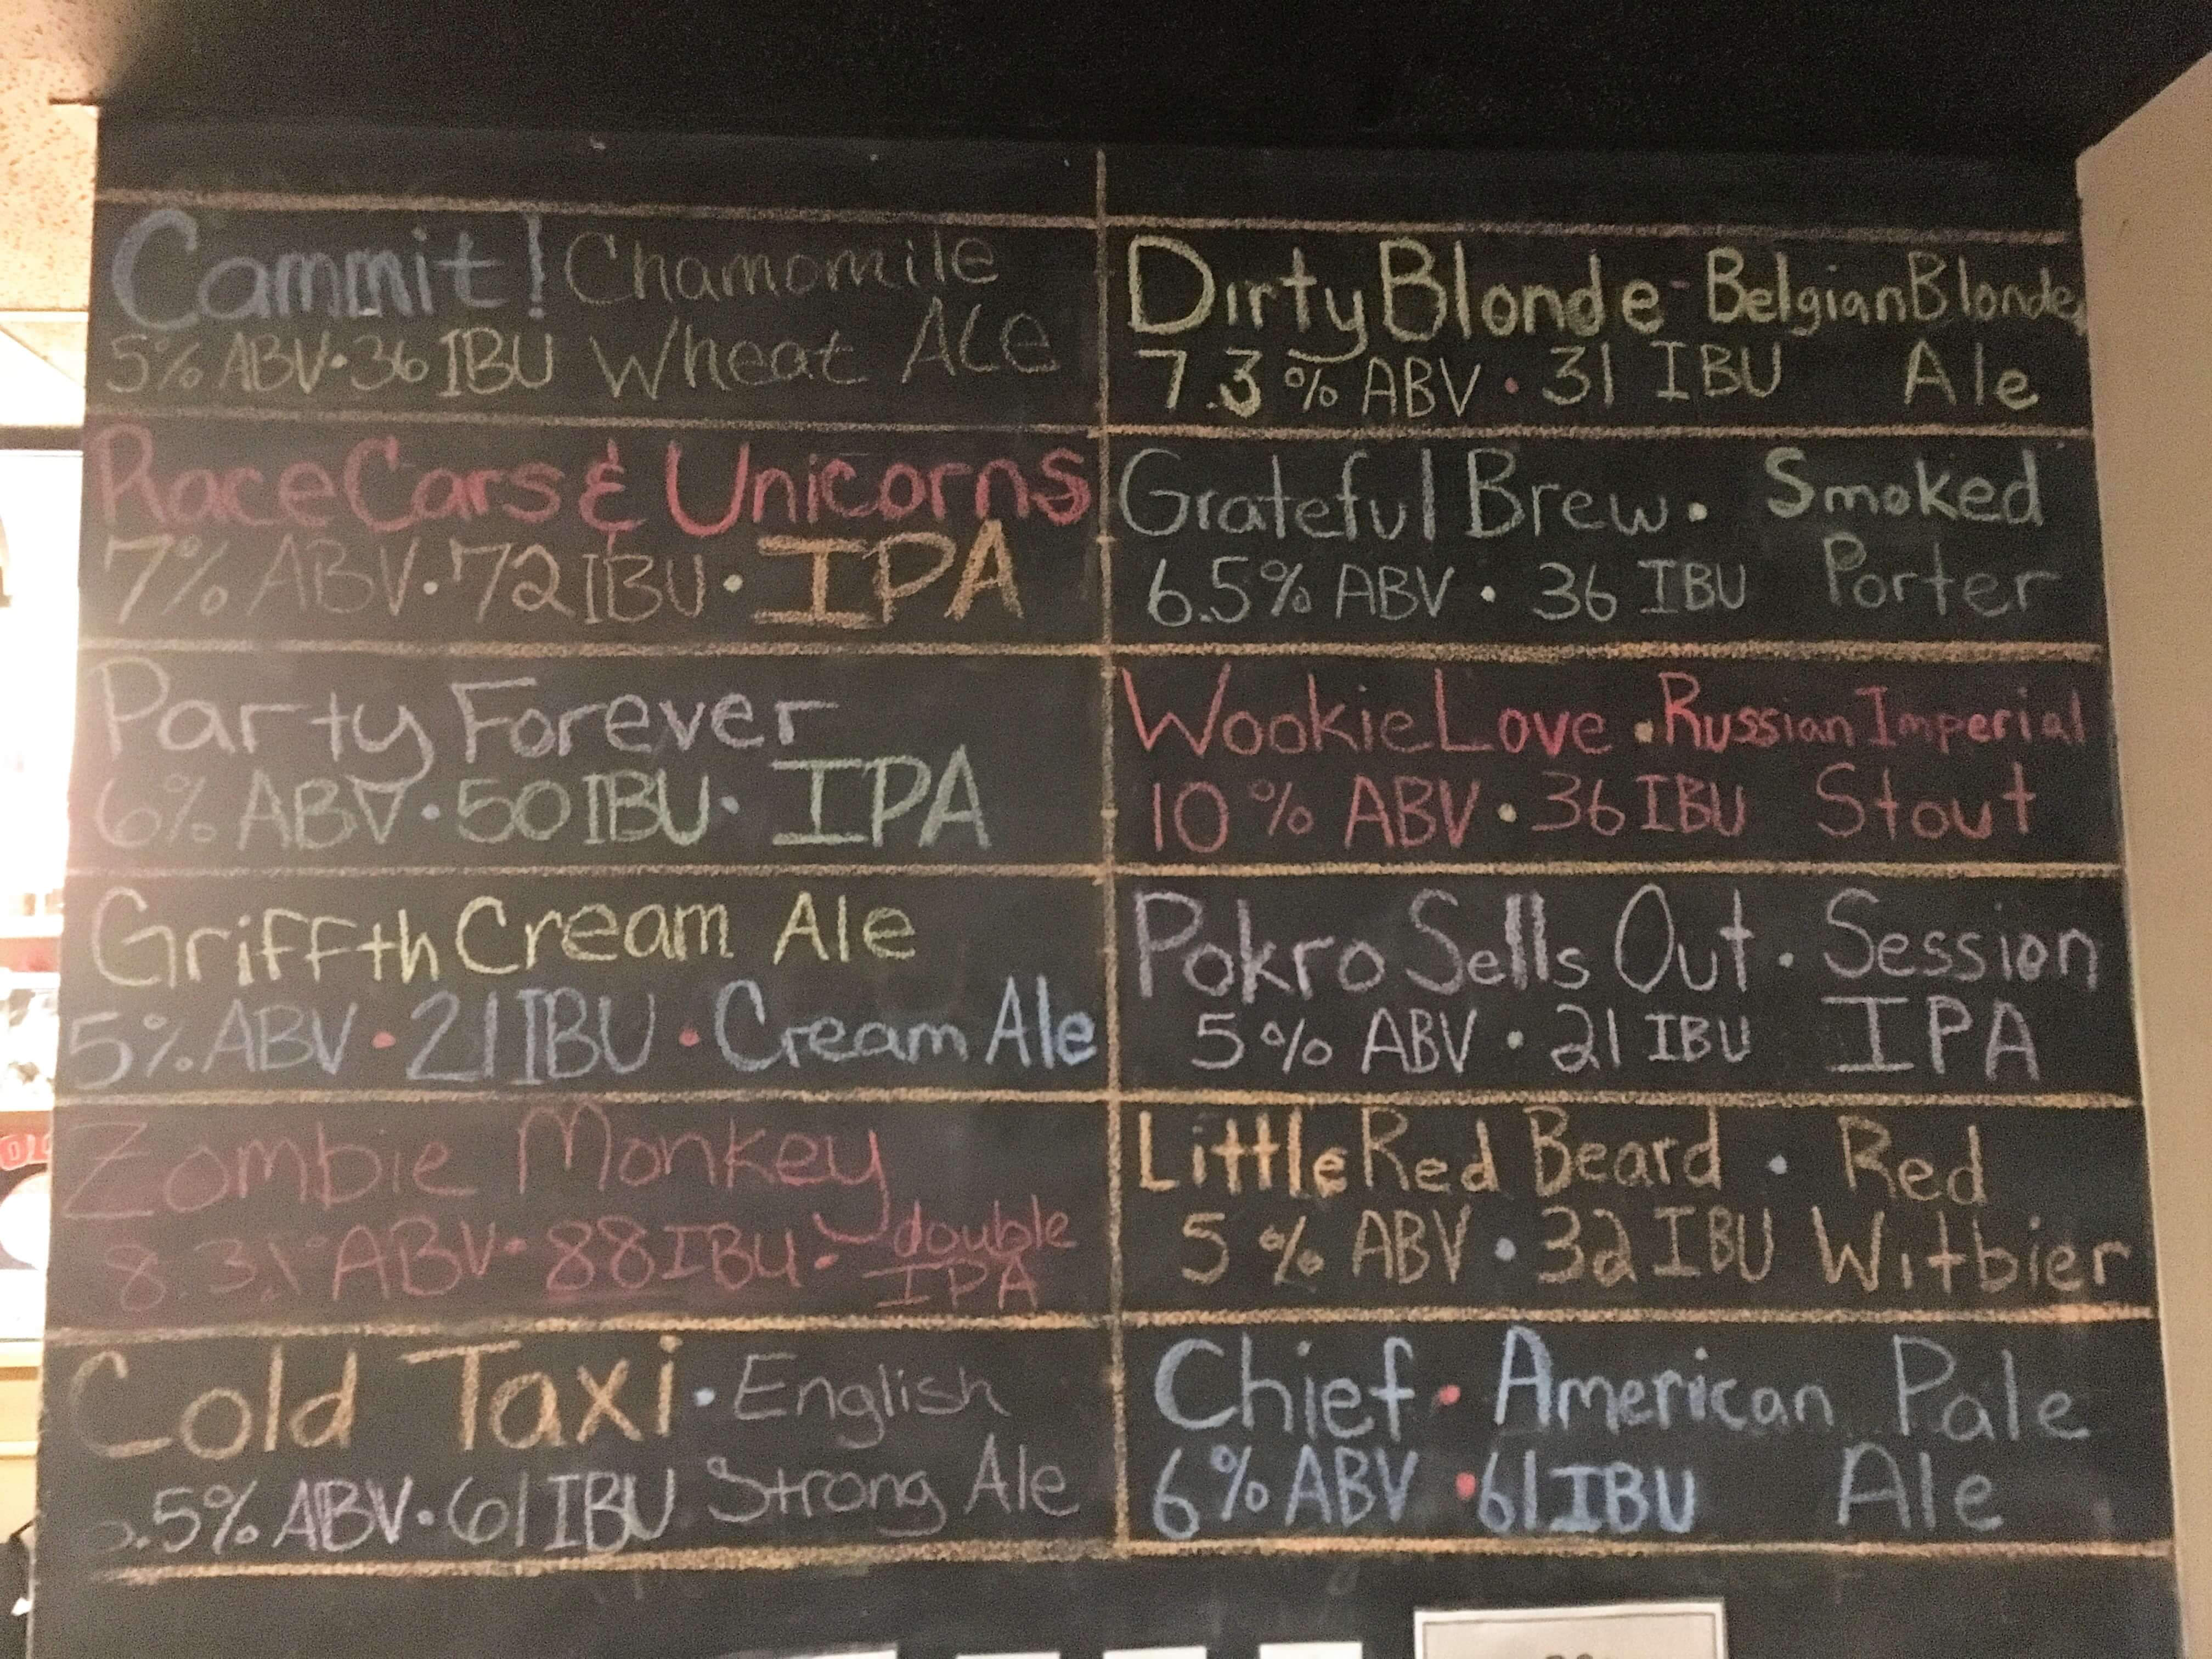 Cammit! Chamomile
5% ABV • 36 IBU Wheat Ale
Race Cars & Unicorns
7% ABV • 72 IBU • IPA
Party Forever
6% ABV • 50 IBU • IPA
Griffth Cream Ale
5% ABV • 21 IBU • Cream Ale
Zombie Monkey
8.3% ABV • 88 IBU • double
IPA
Cold Taxi • English
.5% ABV • 61 IBU Strong Ale
Dirty Blonde - Belgian Blonde
7.3% ABV • 31 IBU Ale
Grateful Brew • Smoked
6.5% ABV • 36 IBU Porter
Wookie Love • Russian Imperial
10% ABV • 36 IBU Stout
Pokro Sells Out • Session
5% ABV • 21 IBU IPA
Little Red Beard • Red
5% ABV • 32 IBU Witbier
Chief • American Pale
6% ABV • 61 IBU Ale